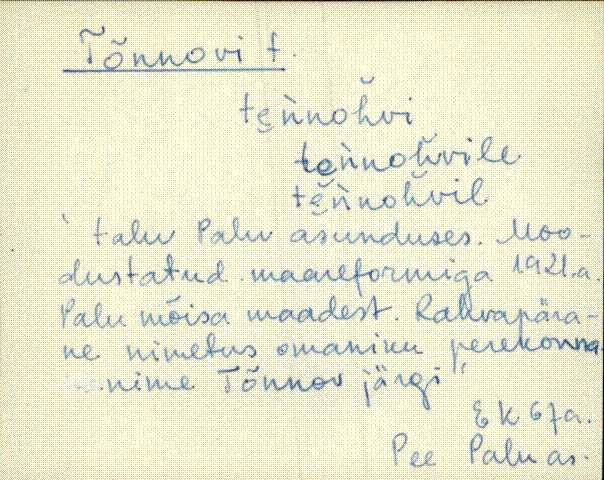 Tõnnovi t.
te̮ǹnoh̆vi
te̮ǹnoh̆vile
te̮ǹnoh̆vil
" talu Palu asunduses. Moo-
dustatud maareformiga 1921.a.
Palu mõisa maadest. Rahvapära-
ne nimetus omaniku perekonna-
nime Tõnnov järgi"
EK 67a.
Pee Palu as.